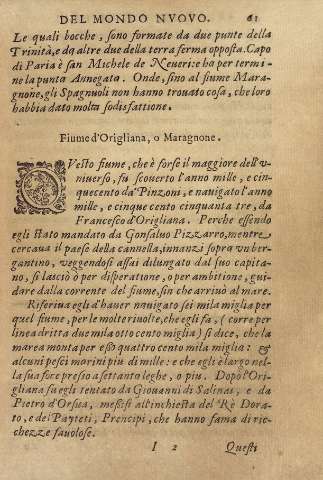 DEL MONDO NVOVO. 61
Le quali bocche, sono formate da due punte della
Trinità, e da altre due della terra ferma opposta. Capo
di Paria è san Michele de Neueri: e ho per termi-
ne la punta Annegata. Onde, sino al fiume Mara-
gnone, gli Spagnuoli non hanno trouato cosa, che loro
habbia dato molta sodisfattione.
Fiume d'Origliana, o Maragnone.
QVesto fiume, che è forse il maggiore dell'v-
niuerso, fù scouerto l'anno mille, e cin-
quecento da' Pinzoni, e nauigato l'anno
mille, e cinque cento cinquanta tre, da
Francesco d'Origliana. Perche essendo
egli stato mandato da Gonsaluo Pizzarro, mentre
cercaua il paese della cannella, innanzi sopra vn ber-
gantino, veggendosi assai dilungato dal suo capita-
no, si lasciò ò per disperatione, o per ambitione, gui-
dare dalla corrente del fiume, sin che arriuò al mare.
Riferiua egli d'hauer nauigato sei mila miglia per
quel fiume, per le molte riuolte, che egli fa, (corre per
linea dritta due mila otto cento miglia) si dice, che la
marea monta per esso quattro cento mila miglia: &
alcuni pesci marini piu di mille: e che egli è largo nel-
la sua foce presso a settanta leghe, o piu. Dopò l'Ori-
gliana fu egli tentato da Giouanni di Salinas, e da
Pietro d'Orsua, messisi all'inchiesta del Rè Dora-
to, e de i Payteti, Prencipi, che hanno fama di ric-
chezze fauolose.
I 2 Questi